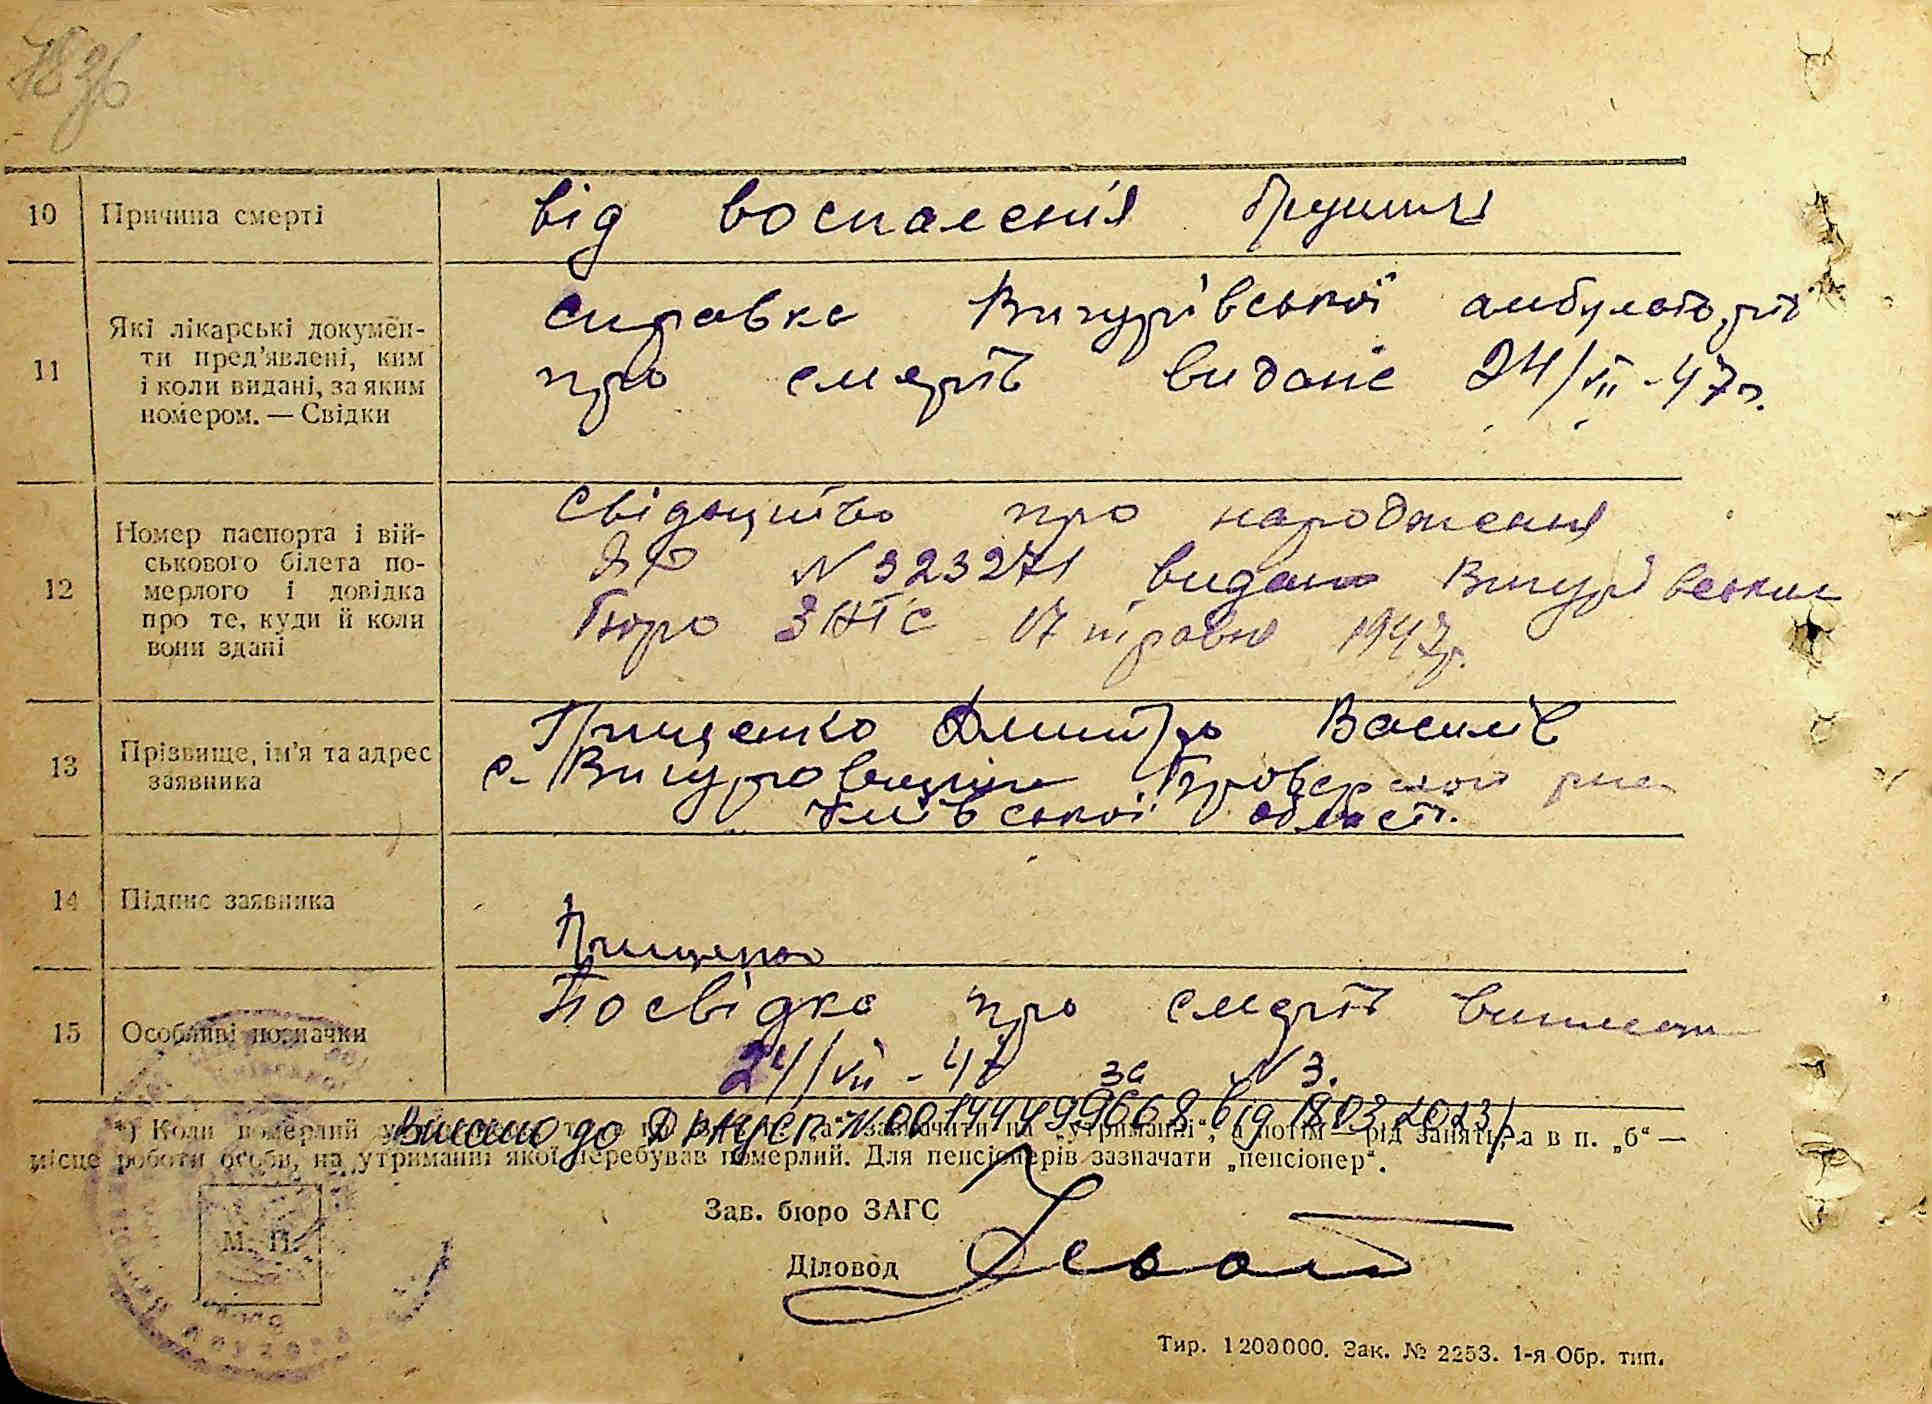 10 Причина смерті
від воспаленія
11 Які лікарські докумен-
ти пред’явлені, ким
і коли видані, за яким
номером. — Свідки
справка Вигурівської амбулаторії
про смерть видане 24/VII-47 г.
12 Номер паспорта і вій-
ськового білета по-
мерлого і довідка
про те, куди й коли
вони здані
Свідоцтво про народження
ЯФ N 323271 видано Вигурівским
Бюро ЗАГС 17 травня 1947 р.
13 Прізвище, ім’я та адрес
заявника
Грищенко Дмитро Васил.
с. Вигуровщина Броверского
Київської області.
14 Підпис заявника
Грищенко
15 Особливі позначки
Посвідка про смерть виписана
24/VII-47 за N 3.
Внесено до ДРАЦСГ N 00144499668 від 18.03.2023 р.
*) Коли померлий „утриманні“, а потім — рід занять, а в п. „б“ —
місце роботи особи, на утриманні якої перебував померлий. Для пенсіонерів зазначати „пенсіонер“.
Зав. бюро ЗАГС
М. П.
Діловод
Тир. 1200000. Зак. № 2253. 1-я Обр. тип.